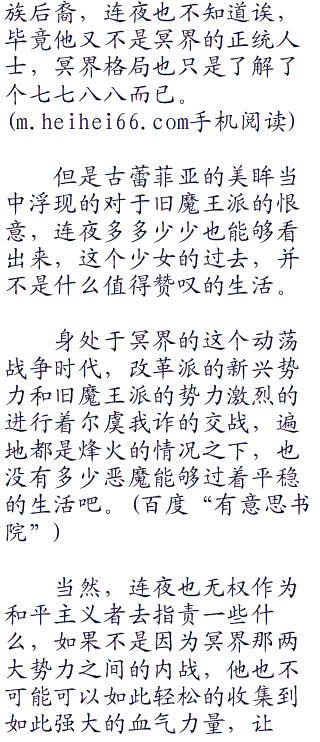 族后裔，连夜也不知道诶，
毕竟他又不是冥界的正统人
士，冥界格局也只是了解了
个七七八八而已。
(m.heihei66.com手机阅读)
但是古蕾菲亚的美眸当
中浮现的对于旧魔王派的恨
意，连夜多多少少也能够看
出来，这个少女的过去，并
不是什么值得赞叹的生活。
身处于冥界的这个动荡
战争时代，改革派的新兴势
力和旧魔王派的势力激烈的
进行着尔虞我诈的交战，遍
地都是烽火的情况之下，也
没有多少恶魔能够过着平稳
的生活吧。(百度“有意思书
院”)
当然，连夜也无权作为
和平主义者去指责一些什
么，如果不是因为冥界那两
大势力之间的内战，他也不
可能可以如此轻松的收集到
如此强大的血气力量，让